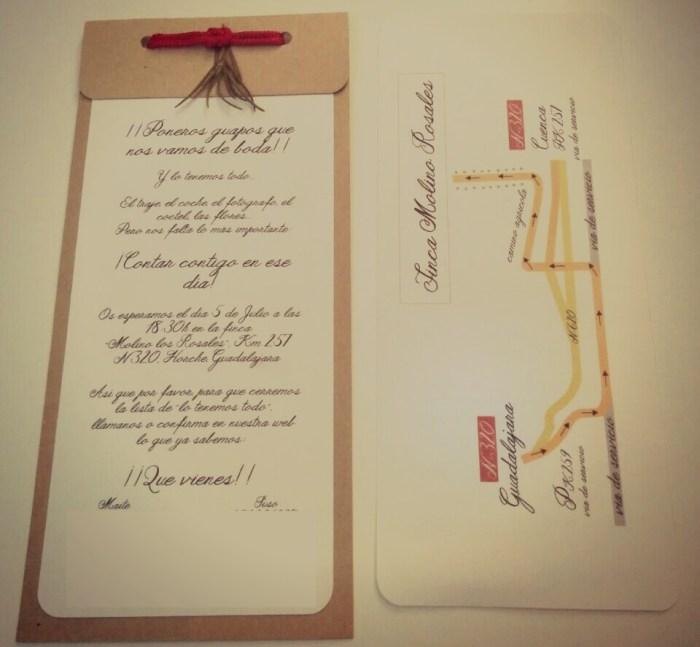 ¡¡Poneros guapos que
nos vamos de boda!!
Y lo tenemos todo...
El traje, el coche, el fotografo, el
coctel, las flores...
Pero nos falta lo mas importante:
¡Contar contigo en ese
dia!
Os esperamos el dia 5 de Julio a las
18:30h en la finca
"Molino los Rosales", Km 257
N320, Horche, Guadalajara
Asi que por favor, para que cerremos
la lista de "lo tenemos todo",
llamanos o confirma en nuestra web
lo que ya sabemos:
¡¡Que vienes!!
Maite Suso
Finca Molino Rosales
N-320
Cuenca
PK 257
via de servicio
via de servicio
camino agricola
N320
N-320
Guadalajara
PK259
via de servicio
via de servicio